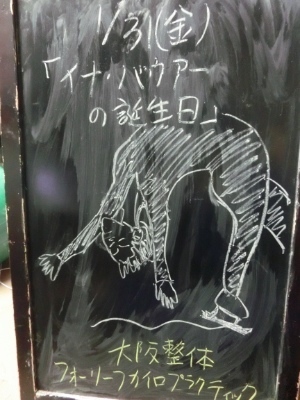 1/31(金)
「イナ・バウアー
の誕生日」
大阪整体
フォーリーフカイロプラクティック